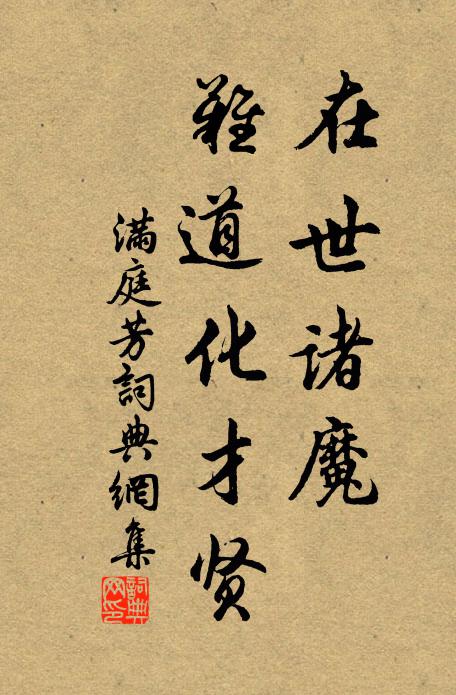 在世诸魔
难道化才贤
满庭芳詞典網集
詞典网印